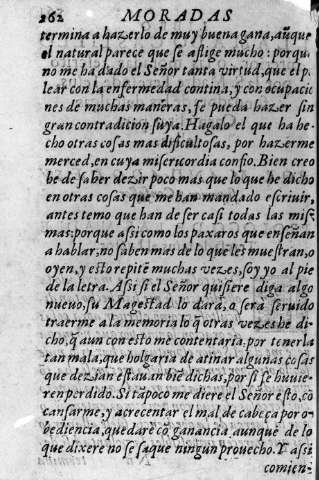 262 MORADAS
termina a hazerlo de muy buena gana, aũque
el natural parece que se aflige mucho: porqu
no me ha dado el Señor tanta virtud, que el p
lear con la enfermedad contina, y con ocupacio
nes de muchas maneras, se pueda hazer sin
gran contradicion suya. Hagalo el que ha he-
cho otras cosas mas dificultosas, por hazerme
merced, en cuya misericordia confio. Bien creo
he de saber dezir poco mas que lo que he dicho
en otras cosas que me han mandado escriuir,
antes temo que han de ser casi todas las mis-
mas: porque assi como los paxaros que enseñan
a hablar, no saben mas de lo que les muestran, o
oyen, y esto repitẽ muchas vezes, soy yo al pie
de la letra. Assi si el Señor quisiere diga algo
nueuo, su Magestad lo dara, o sera seruido
traerme a la memoria lo q̃ otras vezes he di-
cho, q̃ aun con esto me contentaria, por tenerla
tan mala, que holgaria de atinar algunas cosas
que dezian estauan biẽ dichas, por si se huuie-
ren perdido. Si tãpoco me diere el Señor esto, cõ
cansarme, y acrecentar el mal de cabeça por o-
bediencia, quedare cõ ganancia aunque de lo
que dixere no se saque ningun prouecho. Y assi
comien-